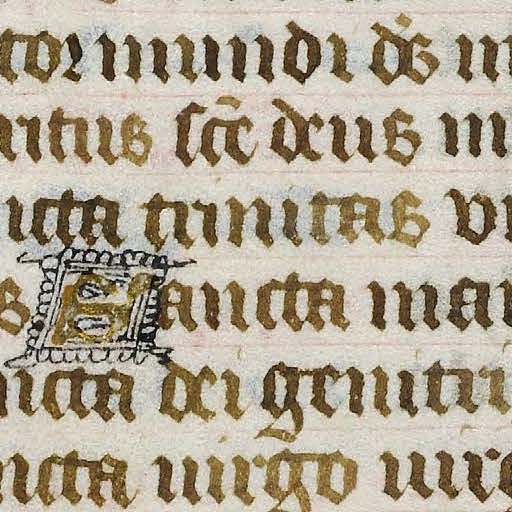 tor mundi ds m
ritus scē deus m
ncta trinitas vn
s Sancta mar
ncta dei genitri
ncta uirgo uirg